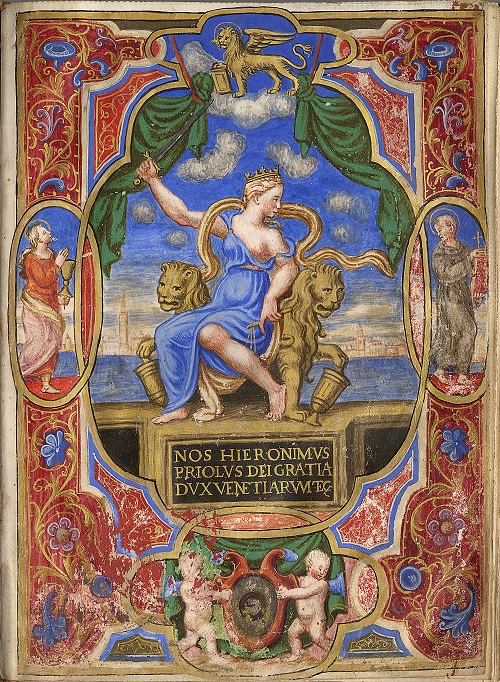 NOS HIERONIMVS
PRIOLVS DEI GRATIA
DVX VENETIARVM·EÇ